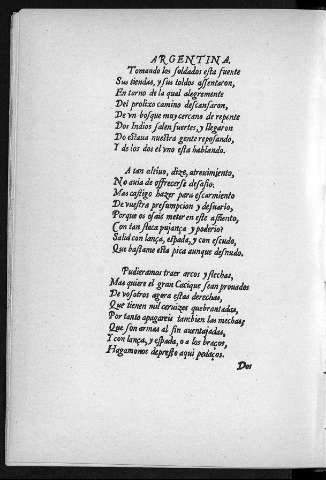 ARGENTINA.
Tomando los soldados esta fuente
Sus tiendas, y sus toldos assentaron,
En torno de la qual alegremente
Del prolixo camino descansaron,
De vn bosque muy cercano de repente
Dos Indios salen fuertes, y llegaron
Do estaua nuestra gente reposando,
Y de los dos el vno està hablando.
A tan altiuo, dize, atreuimiento,
No auia de offrecerse desafio.
Mas castigo hazer para escarmiento
De vuestra presumpcion y desuario,
Porque os osais meter en este assiento,
Con tan flaca pujança y poderio?
Salid con lança, espada, y con escudo,
Que bastame esta pica aunque desnudo.
Pudieramos traer arcos y flechas,
Mas quiere el gran Cacique sean prouados
De vosotros agora estas derechas,
Que tienen mil ceruizes quebrantadas,
Por tanto apagareis tambien las mechas,
Que son armas al fin auentajadas,
Y con lança, y espada, o a los braços,
Hagamonos de presto aqui pedaços.
Dos